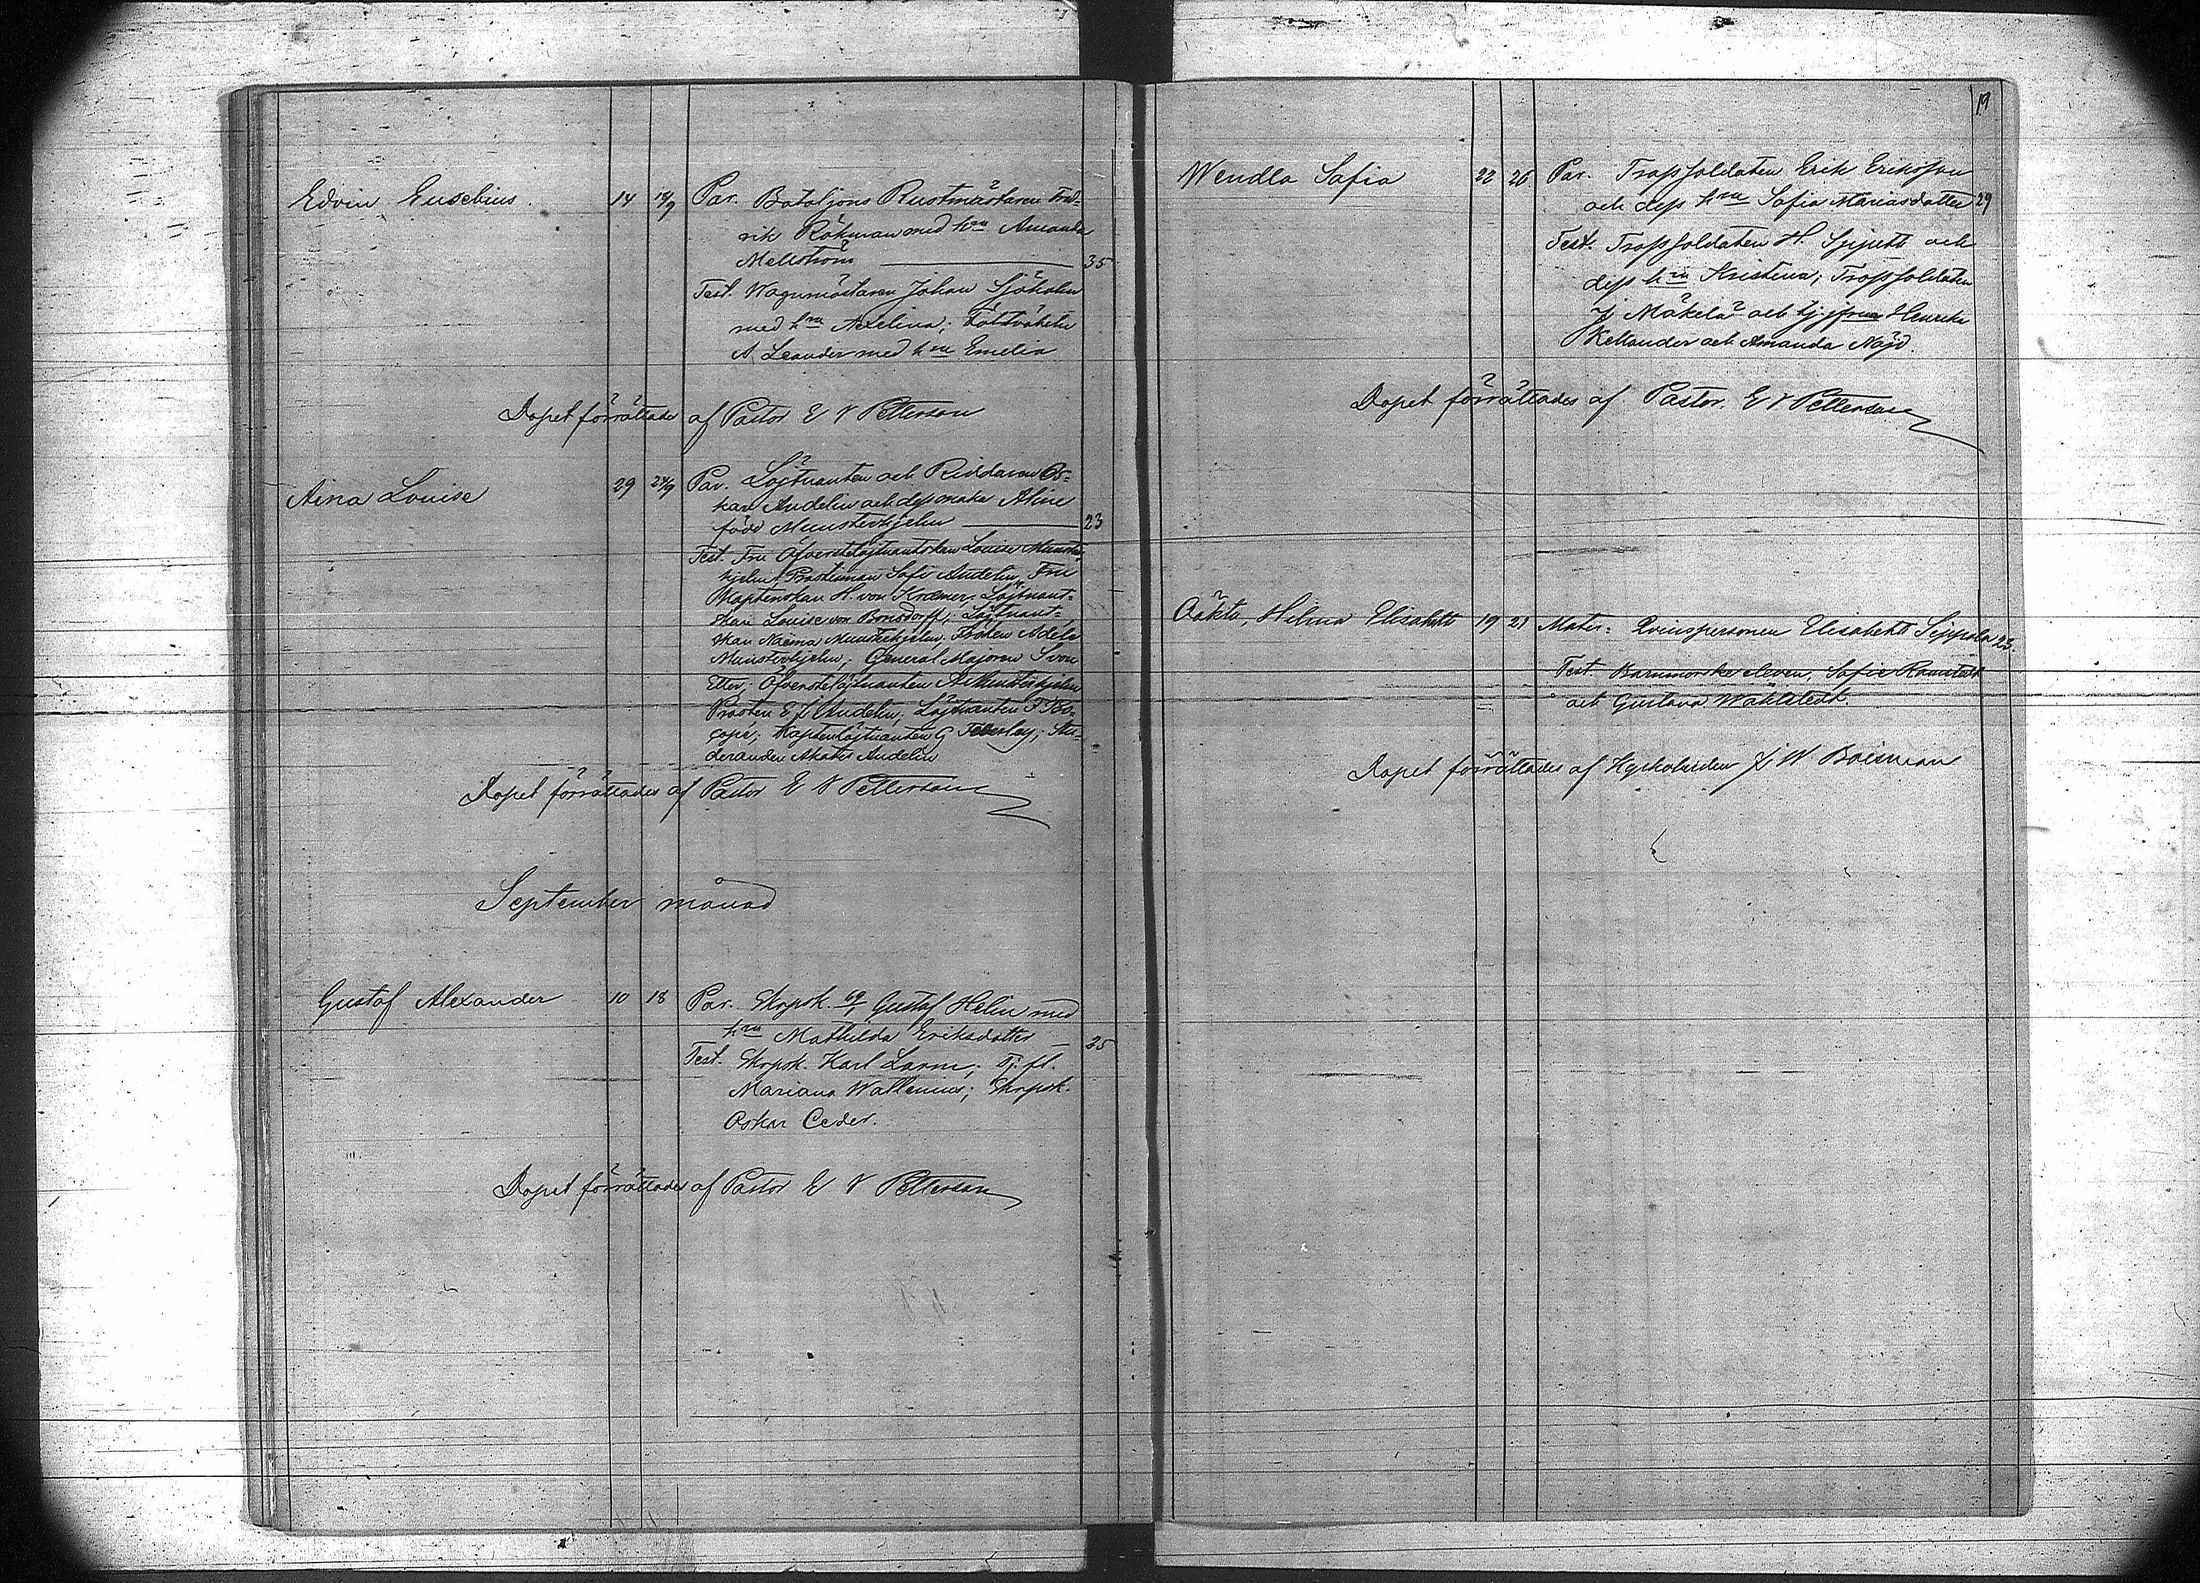 Edvin Eusebius. 14 14/9 Par. Bataljons Rustmästaren Fred-
rik Rökman med hru Amanda
Mellström 35
Test. Wagnmästaren Johan Sjöholm
med hru Axelina; Fältväbeln
A. Leander med hru Emelia
Dopet förrättades af Pastor E V Petterson
Aina Louise 29 24/9 Par. Löjtnanten och Riddaren Os-
kar Andelin och dess maka Aline
född Munsterhjelm 23
Test. Fru Öfverstelöjtnantskan Louise Munster-
hjelm, Prostinnan Sofi Andelin, Fru
Kaptenskan H. von Kræmer, Löjtnant-
skan Louise von Bonsdorff; Löjtnant-
skan Naema Munsterhjelm, Fröken Adéle
Munsterhjelm; General Majoren Sven
Etter; Öfverstelöjtnanten A. Munsterhjelm
Prosten E J Andelin; Löjtnanten
Kaptenlöjtnanten G ; Stu-
deranden Akates Andelin
Dopet förrättades af Pastor E V Petterson
September månad
Gustaf Alexander 10 18 Par. Skrpsk. 69 Gustaf Helin med
hru Mathilda Eriksdotter 25
Test. Skrpsk. Karl Larm; Tj. fl.
Mariana Wallenius; Skrpsk.
Oskar Ceder.
Dopet förrättades af Pastor E V Petterson
19
Wendla Sofia 22 26 Par. Trossoldaten Erik Eriksson
och dess hru Sofia Mariasdotter 29
Test. Trossoldaten H. och
dess hru Kristina; Trossoldaten
J Mäkelä och tj. jfrun Henrika
Kellander och Amanda Näjd.
Dopet förrättades af Pastor. E V Petterson
Oäkta, Hilma Elisabeth 19 21 Mater: Qvinspersonen Elisabeth Seppälä 23.
Test. Barnmorske eleven, Sofie Ramstedt
och Gustava Wahlstedt.
Dopet förrättades af Kyrkoherden J W Boisman